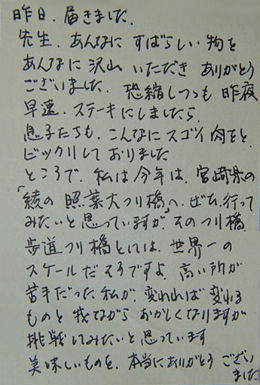 昨日、届きました。
先生、あんなに すばらしい物を
あんなに沢山 いただき ありがとう
ございました。 恐縮しつつも 昨夜
早速、ステーキにしましたら、
息子たちも、こんなにスゴイ肉をと
ビックリして おりました
ところで、私は今年は、宮崎県の
「綾の照葉大つり橋へ、ぜひ、行って
みたいと思っていますが、そのつり橋
歩道つり橋としては、世界一の
スケールだそうですよ、高い所が
苦手だった私が、変われば変わる
ものと 我ながら おかしくなりますが
挑戦してみたいと思っています
美味しいものを、本当にありがとう ござい
ました